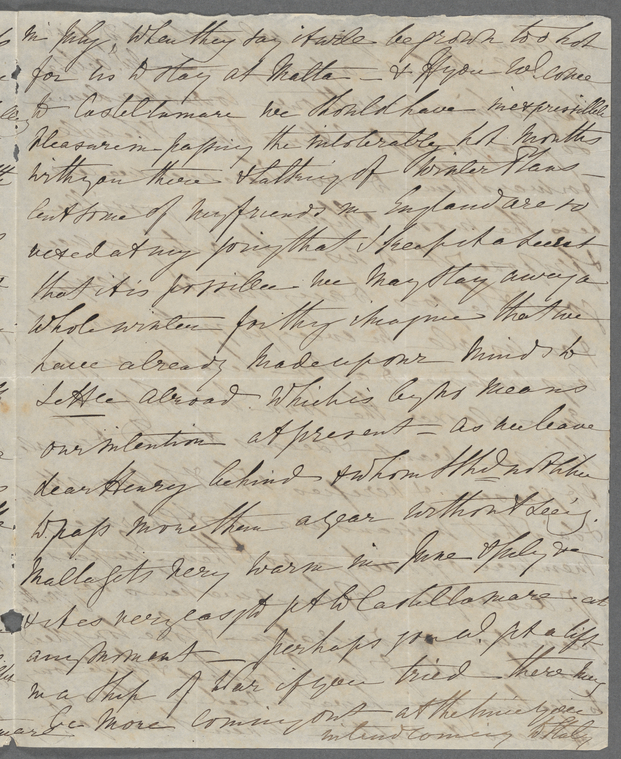 in July, when they say it will be grown too hot
for us to stay at Malta — & if you wd. come
to Castellamare we should have inexpressible
pleasure in passing the intolerably hot months
with you there & talking of Winter Plans —
but some of my friends in England are so
vexed at my going that I keep it a secret
that it is possible we may stay away a
whole winter for they imagine that we
have already made up our minds to
settle abroad which is by no means
our intention at present — as we leave
dear Henry behind & whom I shd. not like
to pass more than a year without seeing.
Malta gets very warm in June & July
& it is very easy to get to Castellamare at
any moment — perhaps you cd. get a lift
in a Ship of War if you tried — there may
be more coming out at the time you
intend coming to Italy